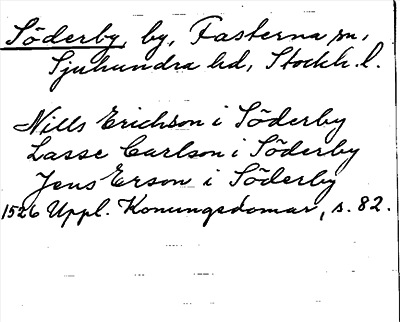 Söderby, by, Fasterna sn,
Sjuhundra hd, Stockh. l.
Nills Erichson i Söderby
Lasse Carlson i Söderby
Jens Erson i Söderby
1526 Uppl. Konungsdomar, s. 82.